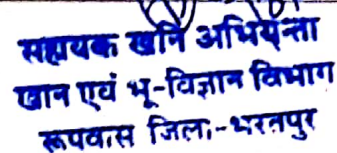 सहायक खनि अभियन्ता
खान एवं भू-विज्ञान विभाग
रूपवास जिला-भरतपुर